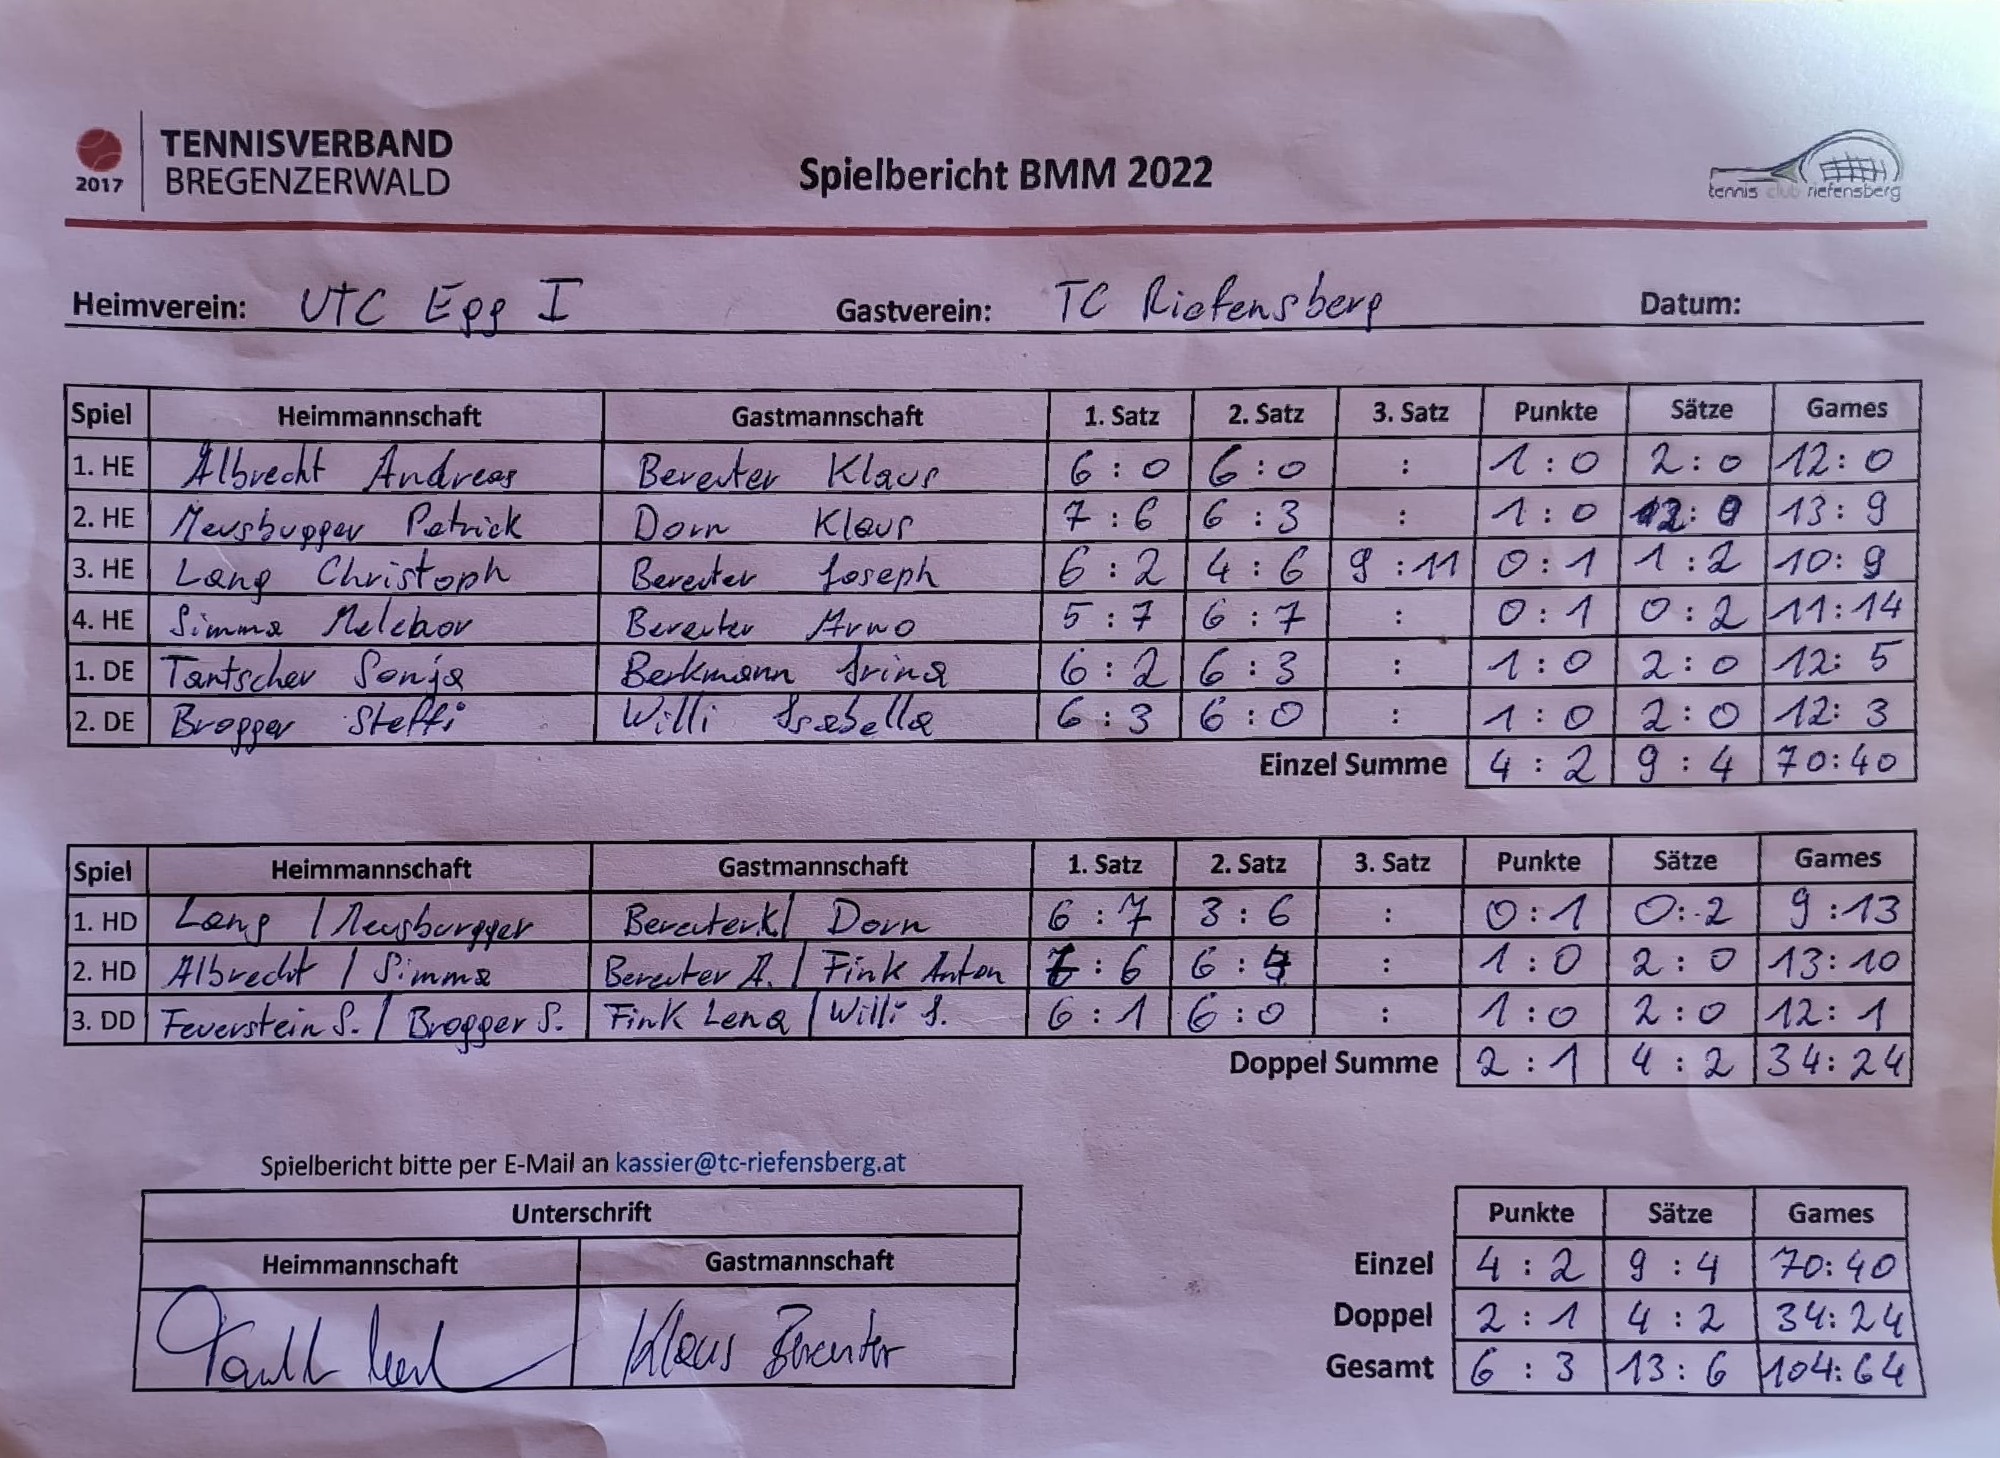 TENNISVERBAND
BREGENZERWALD
2017
Spielbericht BMM 2022
tennis club riefensberg
Heimverein: UTC Egg I Gastverein: TC Riefensberg Datum:
Spiel Heimmannschaft Gastmannschaft 1. Satz 2. Satz 3. Satz Punkte Sätze Games
1. HE Albrecht Andreas Bereuter Klaus 6 : 0 6 : 0 : 1 : 0 2 : 0 12 : 0
2. HE Meusbugger Patrick Dorn Klaus 7 : 6 6 : 3 : 1 : 0 2 : 0 13 : 9
3. HE Lang Christoph Bereuter Joseph 6 : 2 4 : 6 9 : 11 0 : 1 1 : 2 10 : 9
4. HE Simma Melchior Bereuter Arno 5 : 7 6 : 7 : 0 : 1 0 : 2 11 : 14
1. DE Tantscher Sonja Berkmann Irina 6 : 2 6 : 3 : 1 : 0 2 : 0 12 : 5
2. DE Brogger Steffi Willi Isabella 6 : 3 6 : 0 : 1 : 0 2 : 0 12 : 3
Einzel Summe 4 : 2 9 : 4 70 : 40
Spiel Heimmannschaft Gastmannschaft 1. Satz 2. Satz 3. Satz Punkte Sätze Games
1. HD Lang / Meusburgger Bereuter K / Dorn 6 : 7 3 : 6 : 0 : 1 0 : 2 9 : 13
2. HD Albrecht / Simma Bereuter A. / Fink Anton 7 : 6 6 : 4 : 1 : 0 2 : 0 13 : 10
3. DD Feuerstein S. / Brogger S. Fink Lena / Willi I. 6 : 1 6 : 0 : 1 : 0 2 : 0 12 : 1
Doppel Summe 2 : 1 4 : 2 34 : 24
Spielbericht bitte per E-Mail an kassier@tc-riefensberg.at
Unterschrift
Heimmannschaft Gastmannschaft
Klaus Bereuter
Punkte Sätze Games
Einzel 4 : 2 9 : 4 70 : 40
Doppel 2 : 1 4 : 2 34 : 24
Gesamt 6 : 3 13 : 6 104 : 64